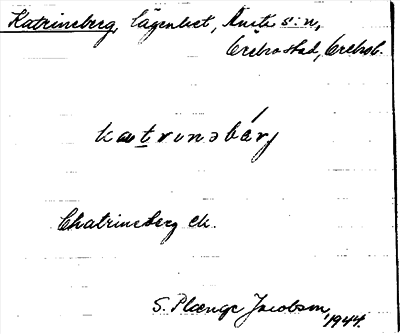 Katrineberg, lägenhet, Knista s:n,
Örebro stad, Örebro l.
katrinəbärj
Chatrineberg ek.
S. Plænge Jacobson, 1944.